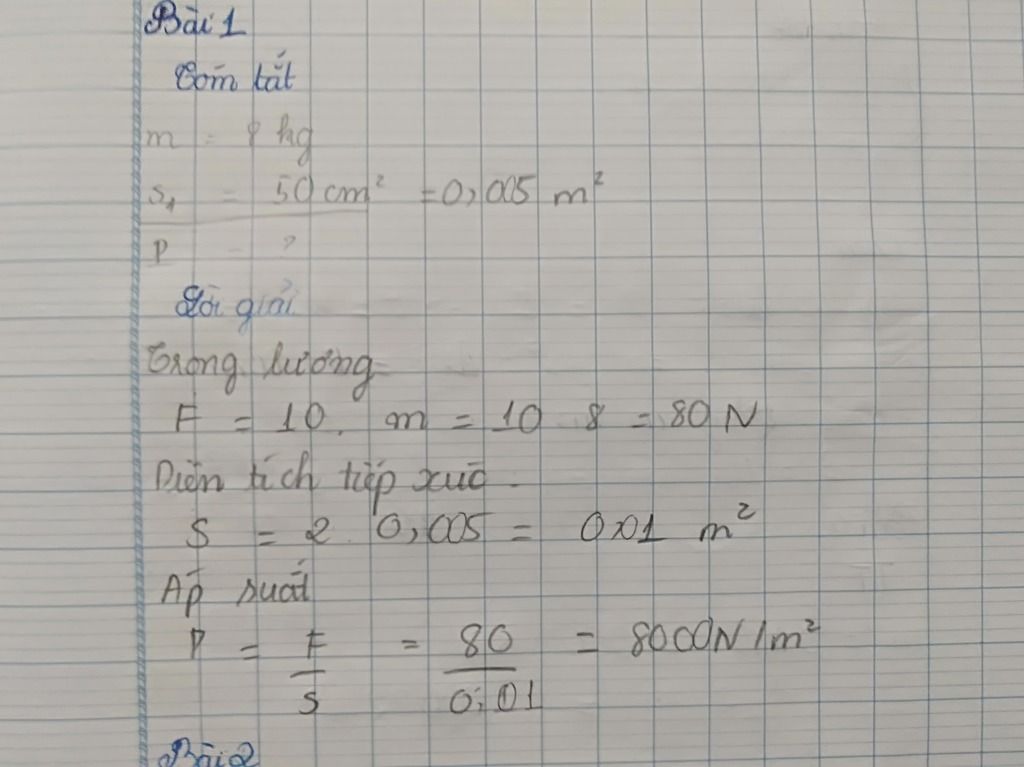 Bài 1
Tóm tắt
m = 8 kg
S₁ = 50 cm² = 0,005 m²
P = ?
Lời giải
Trọng lượng
F = 10. m = 10 8 = 80 N
Diện tích tiếp xúc
S = 2. 0,005 = 0,01 m²
Áp suất
P = F/S = 80/0,01 = 8000N/m²
Bài 2